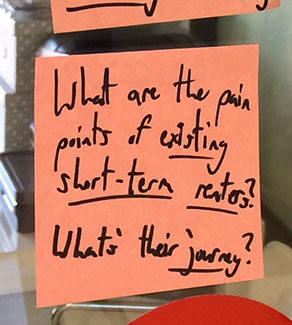 What are the pain
points of existing
short-term renters?
What's their journey?